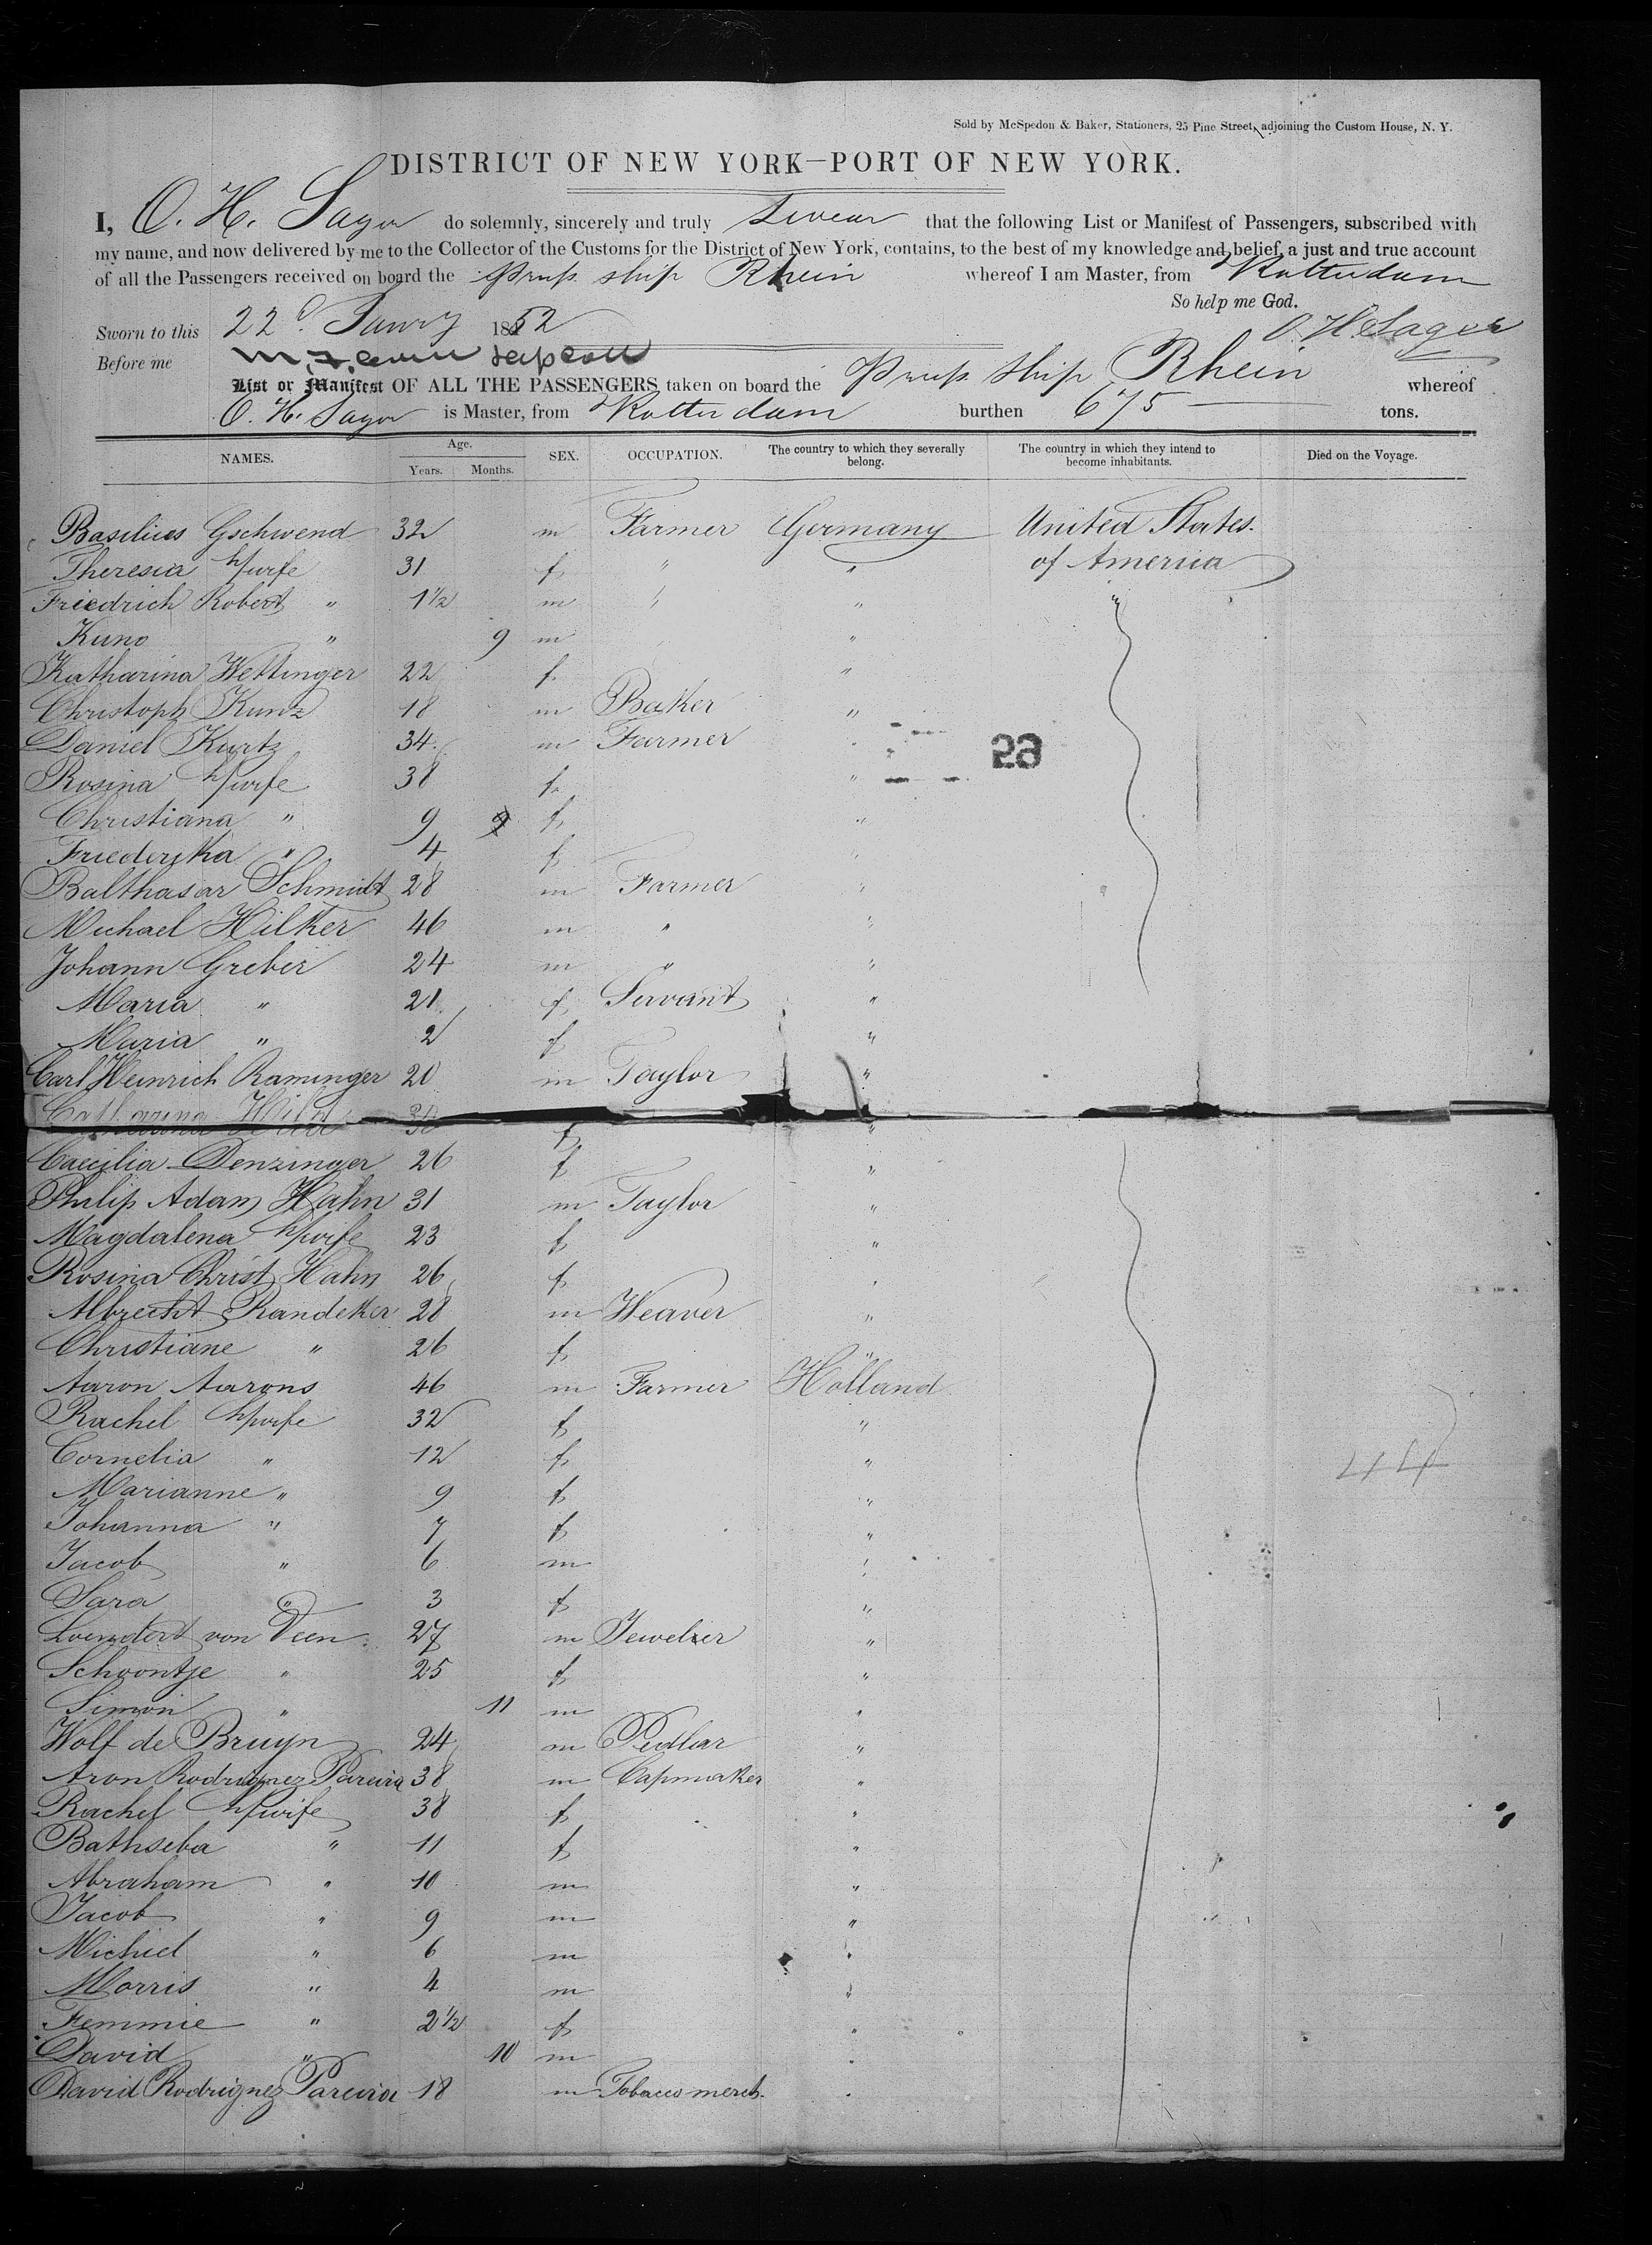 Sold by McSpedon & Baker, Stationers, 25 Pine Street, adjoining the Custom House, N. Y.
DISTRICT OF NEW YORK—PORT OF NEW YORK.
I, O. H. Sager do solemnly, sincerely and truly swear that the following List or Manifest of Passengers, subscribed with
my name, and now delivered by me to the Collector of the Customs for the District of New York, contains, to the best of my knowledge and belief, a just and true account
of all the Passengers received on board the Pruss. ship Rhein whereof I am Master, from Rotterdam
So help me God.
Sworn to this 22d. Janry 1852 O. H. Sager
Before me
List or Manifest OF ALL THE PASSENGERS taken on board the Pruss. Ship Rhein whereof
O. H. Sager is Master, from Rotterdam burthen 675 tons.
NAMES. Age. Years. Months. SEX. OCCUPATION. The country to which they severally belong. The country in which they intend to become inhabitants. Died on the Voyage.
Basilius Gschwend 32 m Farmer Germany United States.
Theresia h/wife 31 f " " of America
Friedrich Robert " 1 1/2 m " " "
Kuno " 9 m "
Katharina Wettinger 22 f "
Christoph Kunz 18 m Baker "
Daniel Kurtz 34 m Farmer "
Rosina h/wife 38 f "
Christiana " 9 f "
Friederika " 4 f "
Balthasar Schmidt 28 m Farmer "
Michael Hilker 46 m " "
Johann Greber 24 m " "
Maria " 21 f Servant "
Maria " 2 f "
Carl Heinrich Raminger 20 m Taylor "
Catharina Hild f "
Caecilia Denzinger 26 f "
Philip Adam Hahn 31 m Taylor "
Magdalena h/wife 23 f "
Rosina Christ. Hahn 26 f "
Albrecht Randeker 28 m Weaver "
Christiane " 26 f "
Aaron Aarons 46 m Farmer Holland
Rachel h/wife 32 f "
Cornelia " 12 f "
Marianne " 9 f "
Johanna " 7 f "
Jacob " 6 m "
Sara " 3 f "
Leendert von Veen 27 m Jewelier "
Schoontje " 25 f "
Simon " 11 m "
Wolf de Bruyn 24 m Pedlar "
Aron Rodriguez Pareira 38 m Capmaker "
Rachel h/wife 38 f "
Bathseba " 11 f "
Abraham " 10 m "
Jacob " 9 m "
Michiel " 6 m "
Morris " 4 m "
Femmie " 2 1/2 f "
David " 10 m "
David Rodriguez Pareira 18 m Tobacco merch. "
44